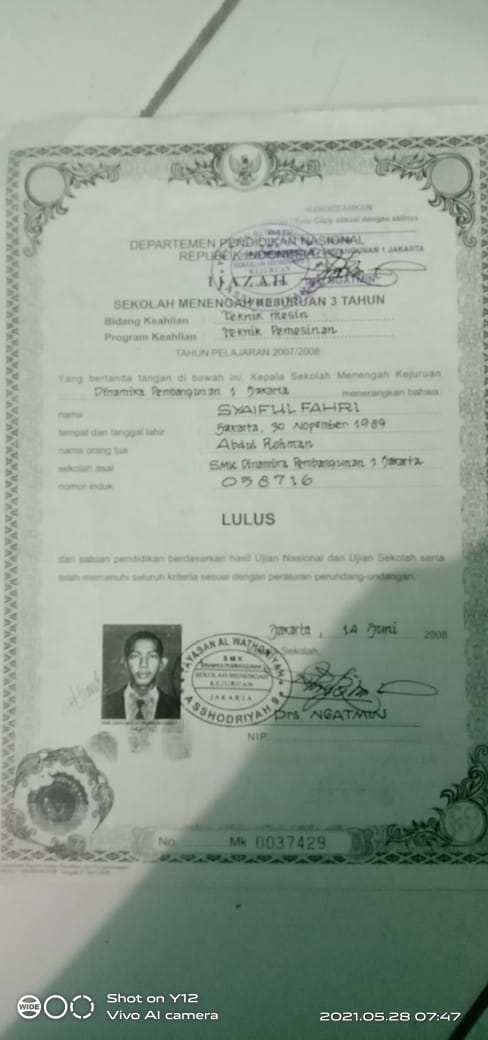 DEPARTEMEN PENDIDIKAN NASIONAL
REPUBLIK INDONESIA
IJAZAH
SEKOLAH MENENGAH KEJURUAN 3 TAHUN
Bidang Keahlian : Teknik mesin
Program Keahlian : Teknik Pemesinan
TAHUN PELAJARAN 2007/2008
Yang bertanda tangan di bawah ini, Kepala Sekolah Menengah Kejuruan
Dinamika Pembangunan 1 Jakarta menerangkan bahwa:
nama SYAIFUL FAHRI
tempat dan tanggal lahir Jakarta, 30 Nopember 1989
nama orang tua Abdul Rohman
sekolah asal SMK Dinamika Pembangunan 1 Jakarta
nomor induk 058716
LULUS
dari satuan pendidikan berdasarkan hasil Ujian Nasional dan Ujian Sekolah serta
telah memenuhi seluruh kriteria sesuai dengan peraturan perundang-undangan.
Jakarta, 14 Juni 2008
Sekolah,
YAYASAN AL WATHONIYAH
SMK
DINAMIKA PEMBANGUNAN 1
SEKOLAH MENENGAH
KEJURUAN
JAKARTA
ASSHODRIYAH 9
Drs NGATMIN
NIP.
No. Mk 0037429
WIDE
Shot on Y12
Vivo AI camera
2021.05.28 07:47